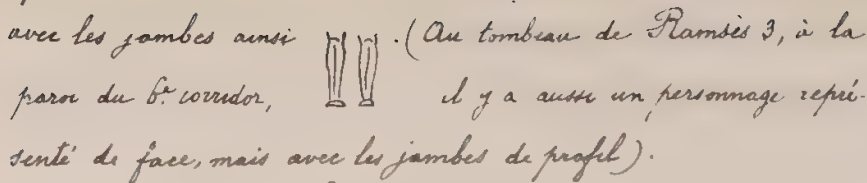 avec les jambes ainsi . (Au tombeau de Ramsès 3, à la
paroi du 6e corridor, il y a aussi un personnage repré-
senté de face, mais avec les jambes de profil).